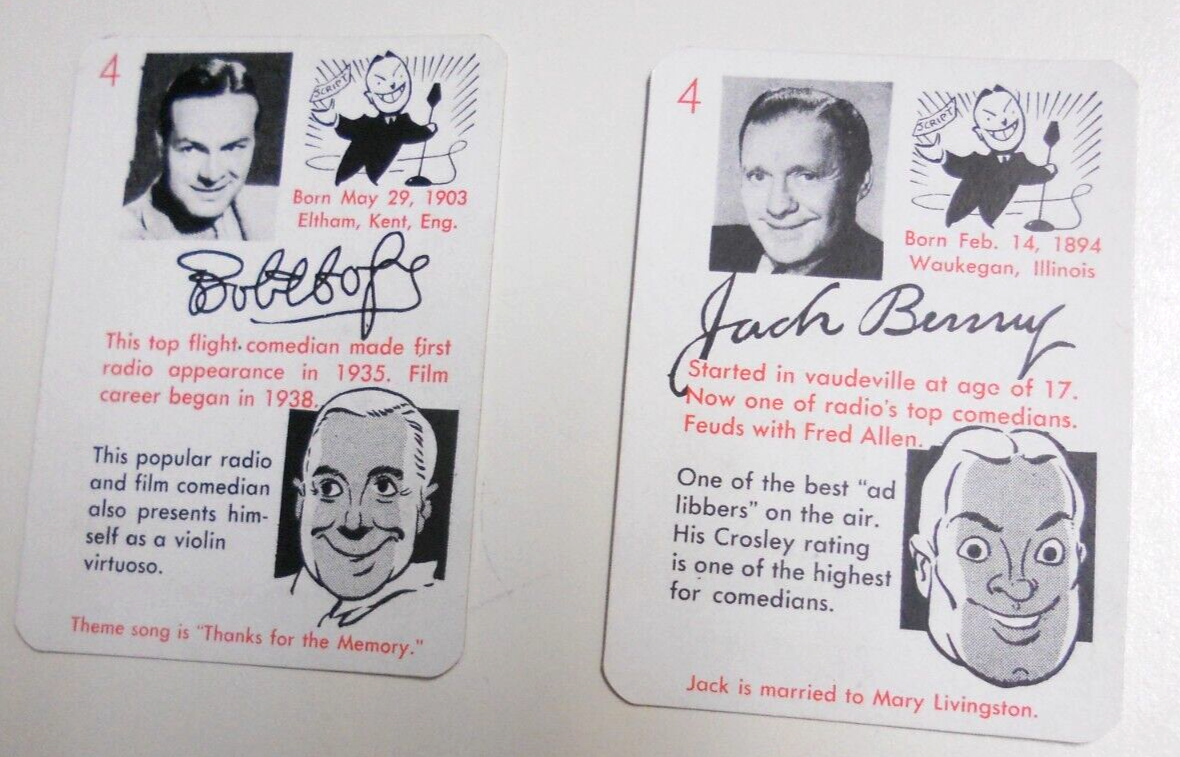 4
SCRIPT
Born May 29, 1903
Eltham, Kent, Eng.
Bob Hope
This top flight comedian made first
radio appearance in 1935. Film
career began in 1938.
This popular radio
and film comedian
also presents him-
self as a violin
virtuoso.
Theme song is "Thanks for the Memory."
4
SCRIPT
Born Feb. 14, 1894
Waukegan, Illinois
Jack Benny
Started in vaudeville at age of 17.
Now one of radio's top comedians.
Feuds with Fred Allen.
One of the best "ad
libbers" on the air.
His Crosley rating
is one of the highest
for comedians.
Jack is married to Mary Livingston.